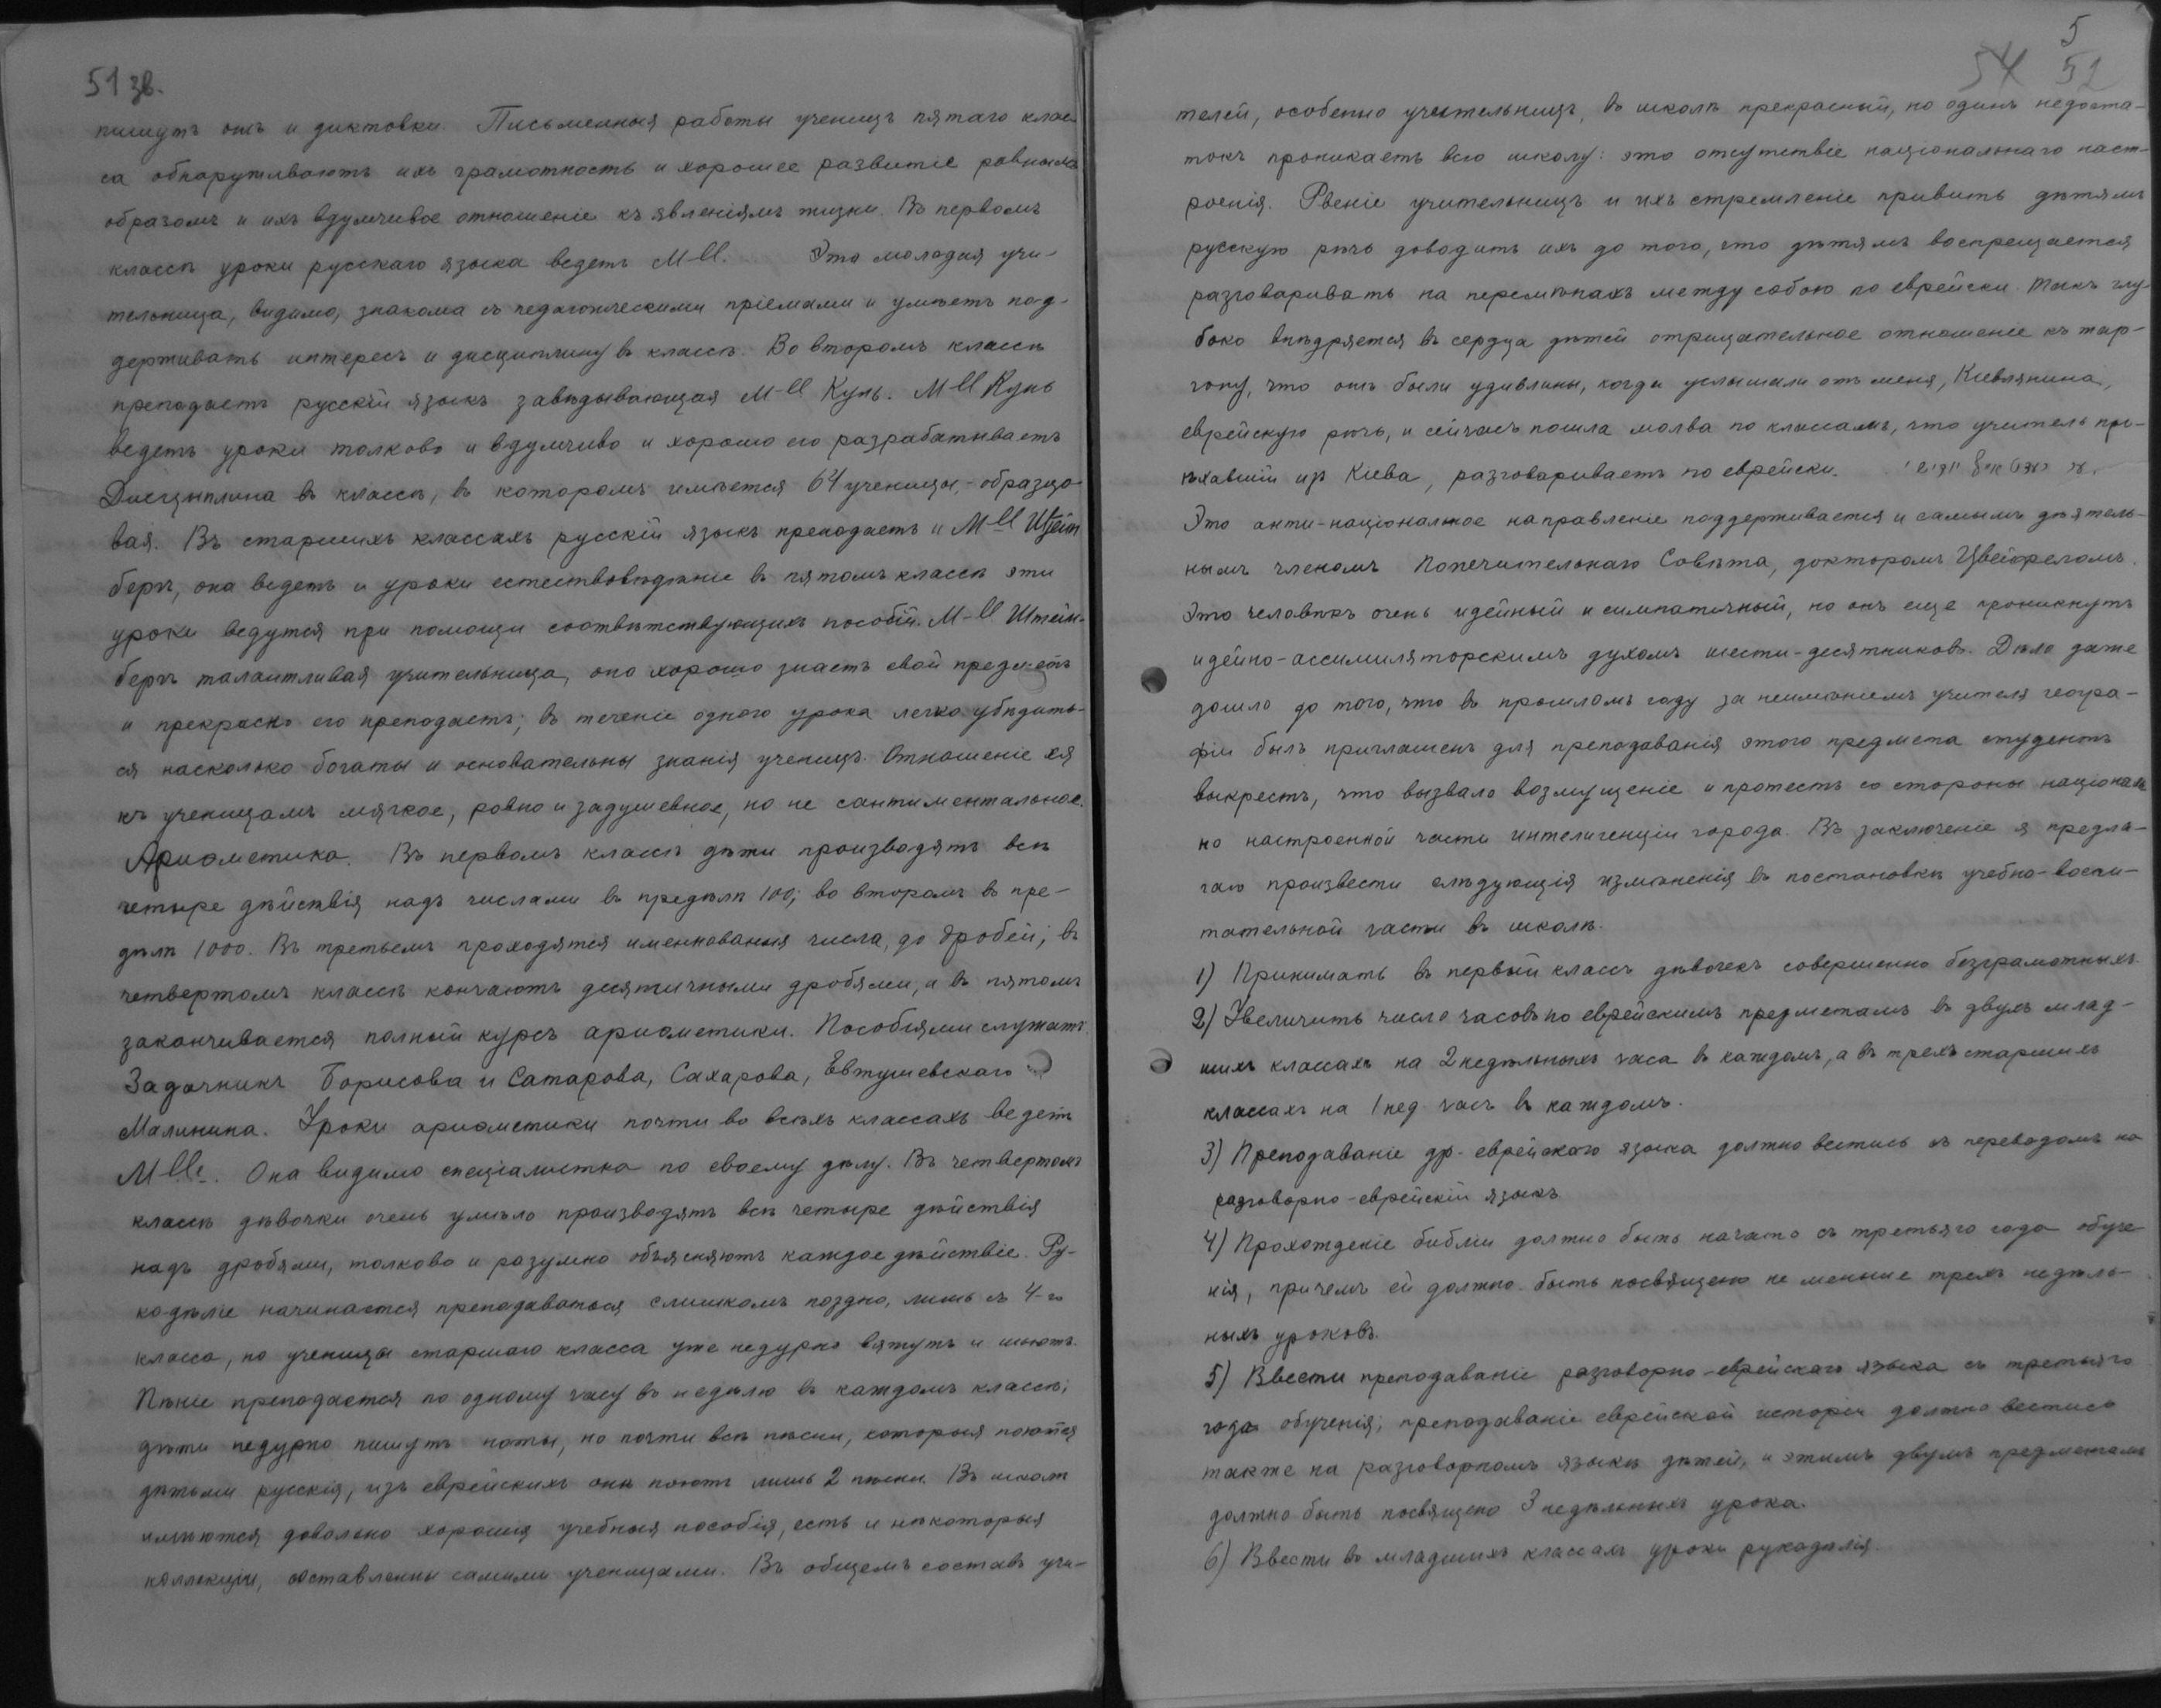 51 зв.
пишутъ онѣ и диктовки. Письменныя работы ученицъ пятаго клас-
са обнаруживаютъ ихъ грамотность и хорошее развитіе равнымъ
образомъ и ихъ вдумчивое отношеніе къ явленіямъ жизни. Въ первомъ
классѣ уроки русскаго языка ведетъ M-ll. Эта молодая учи-
тельница, видимо, знакома съ педагогическими пріемами и умѣетъ под-
держивать интересъ и дисциплину въ классѣ. Во второмъ классѣ
преподаетъ русскій языкъ завѣдывающая M-ll Кунь. M-ll Кунь
ведетъ уроки толково и вдумчиво и хорошо его разрабатываетъ
Дисцыплина въ классѣ, въ которомъ имѣется 64 ученицы, - образцо
вая. Въ старшихъ классахъ русскій языкъ преподаетъ и M-ll Штейн
бергъ, она ведетъ и уроки естествовѣдѣніе въ пятомъ классѣ эти
уроки ведутся при помощи соотвѣтствующихъ пособій. M-ll Штейн-
бергъ талантливая учительница, она хорошо знаетъ свой предметъ
и прекрасно его преподаетъ; въ теченіе одного урока легко убѣдить-
ся насколько богаты и основательны знанія ученицъ. Отношеніе ея
къ ученицамъ мягкое, ровно и задушевное, но не сантиментальное.
Ариѳметика. Въ первомъ классѣ дѣти производятъ всѣ
четыре дѣйствія надъ числами въ предѣлѣ 100; во второмъ въ пре-
дѣлѣ 1000. Въ третьемъ проходятся именнованыя числа, до дробей; въ
четвертомъ классѣ кончаютъ десятичными дробями, а въ пятомъ
заканчивается полный курсъ ариѳметики. Пособіями служатъ
Задачникъ Борисова и Сатарова, Сахарова, Евтушевскаго
Малинина. Уроки ариѳметики почти во всѣхъ классахъ ведетъ
M-lle. Она видимо спеціалистка по своему дѣлу. Въ четвертомъ
классѣ дѣвочки очень умѣло производятъ всѣ четыре дѣйствія
надъ дробями, толково и разумно объясняютъ каждое дѣйствіе. Ру-
кодѣліе начинается преподаваться слишкомъ поздно, лишь съ 4-го
класса, но ученицы старшаго класса уже недурно вяжутъ и шьютъ.
Пѣніе преподается по одному часу въ недѣлю въ каждомъ классѣ;
дѣти недурно пишутъ ноты, но почти всѣ пѣсни, которыя поются
дѣтьми русскія, изъ еврейскихъ онѣ поютъ лишь 2 пѣсни. Въ школѣ
имѣются довольно хорошія учебныя пособія, есть и нѣкоторыя
коллекціи, составлены самими ученицами. Въ общемъ составъ учи-
5
54 52
телей, особенно учительницъ, въ школѣ прекрасный, но одинъ недоста-
токъ проникаетъ всю школу: это отсутствіе національнаго наст-
роенія. Рвеніе учительницъ и ихъ стремленіе привить дѣтямъ
русскую рѣчь доводитъ ихъ до того, что дѣтямъ воспрещается
разговаривать на перемѣнахъ между собою по еврейски. Такъ глу-
боко внѣдряется въ сердца дѣтей отрицательное отношеніе къ жар-
гону, что онѣ были удивлины, когда услышали отъ меня, Кіевлянина,
еврейскую рѣчь, и сейчасъ пошла молва по классамъ, что учитель прі-
ѣхавшій изъ Кіева, разговариваетъ по еврейски.
Это анти-національное направленіе поддерживается и самымъ дѣятель-
нымъ членомъ Попечительнаго Совѣта, докторомъ Цвейфелемъ.
Это человѣкъ очень идейный и симпатичный, но онъ еще проникнутъ
идейно-ассимиляторскимъ духомъ шести-десятниковъ. Дѣло даже
дошло до того, что въ прошломъ году за неимѣніемъ учителя геогра-
фіи былъ приглашенъ для преподаванія этого предмета студентъ
выкрестъ, что вызвало возмущеніе и протестъ со стороны націонал
но настроенной части интелигенціи города. Въ заключеніе я предла-
гаю произвести слѣдующія измѣненія въ постановкѣ учебно-воспи-
тательной части въ школѣ.
1) Принимать въ первый классъ дѣвочекъ совершенно безграмотныхъ.
2) Увеличить число часовъ по еврейскимъ предметамъ въ двухъ млад-
шихъ классахъ на 2 недѣльныхъ часа въ каждомъ, а въ трехъ старшихъ
классахъ на 1 нед. часъ въ каждомъ.
3) Преподаваніе др.-еврейскаго языка должно вестись съ переводомъ на
разговорно-еврейскій языкъ
4) Прохожденіе библіи должно быть начато съ третьяго года обуче
нія, причемъ ей должно быть посвящено не меньше трехъ недѣль-
ныхъ уроковъ.
5) Ввести преподаваніе разговорно-еврейскаго языка съ третьяго
года обученія; преподаваніе еврейской исторіи должно вестись
также на разговорномъ языкѣ дѣтей, и этимъ двумъ предметамъ
должно быть посвящено 3 недѣльныхъ урока.
6) Ввести въ младшихъ классахъ уроки рукодѣлія.